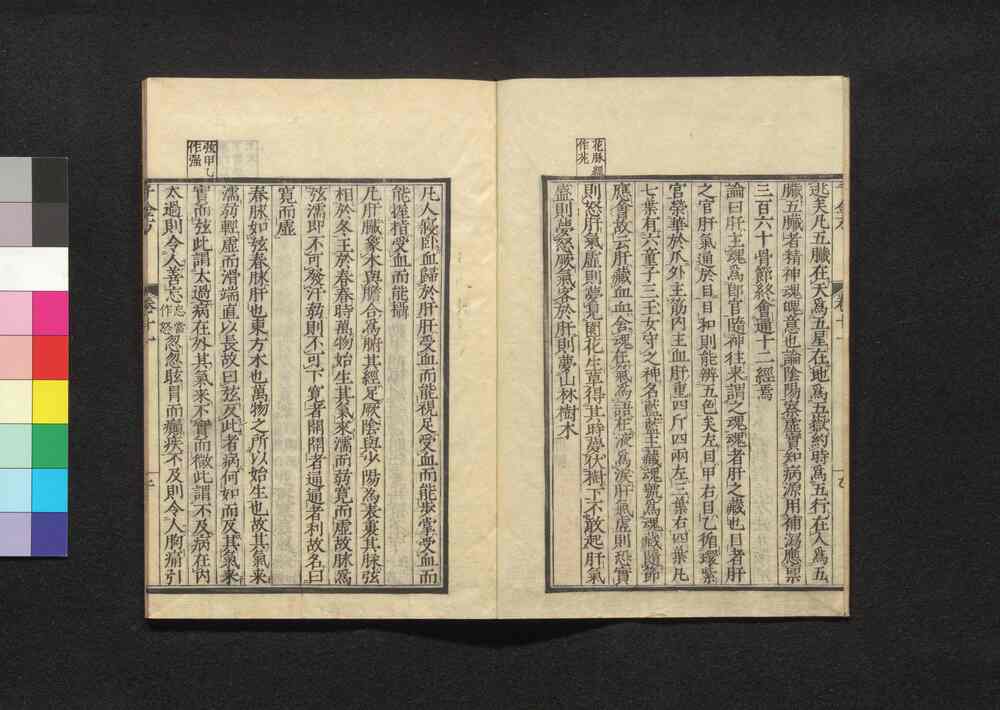 花脉經
作光
逃矣凡五臟在天爲五星在地爲五嶽約時爲五行在人爲五
臟五臟者精神魂魄意也論陰陽察虛實知病源用補瀉應禀
三百六十骨節終會通十二經焉
論曰肝主魂爲郎官隨神往來謂之魂魂者肝之藏也目者肝
之官肝氣通於目目和則能辨五色矣左目甲右目乙循環紫
宮榮華於爪外主筋内主血肝重四斤四兩左三葉右四葉凡
七葉有六童子三玉女守之神名藍藍主藏魂號爲魂藏隨節
應會故云肝藏血血舍魂在氣爲語在液爲淚肝氣虛則恐實
則怒肝氣虛則夢見園花生草得其時夢伏樹下不敢起肝氣
盛則夢怒厥氣客於肝則夢山林樹木
凡人寢卧血歸於肝肝受血而能視足受血而能步掌受血而
能握指受血而能攝
凡肝臟象木與膽合爲腑其經足厥陰與少陽爲表裏其脉弦
相於冬王於春春時萬物始生其氣來濡而弱寛而虛故脉爲
弦濡即不可發汗弱則不可下寛者開開者通通者利故名曰
寛而虛
弦甲乙
作强
春脉如弦春脉肝也東方木也萬物之所以始生也故其氣來
濡弱輕虛而滑端直以長故曰弦反此者病何如而反其氣來
實而弦此謂太過病在外其氣來不實而微此謂不及病在内
太過則令人善忘忘當作怒忽忽眩冒而癲疾不及則令人胸痛引